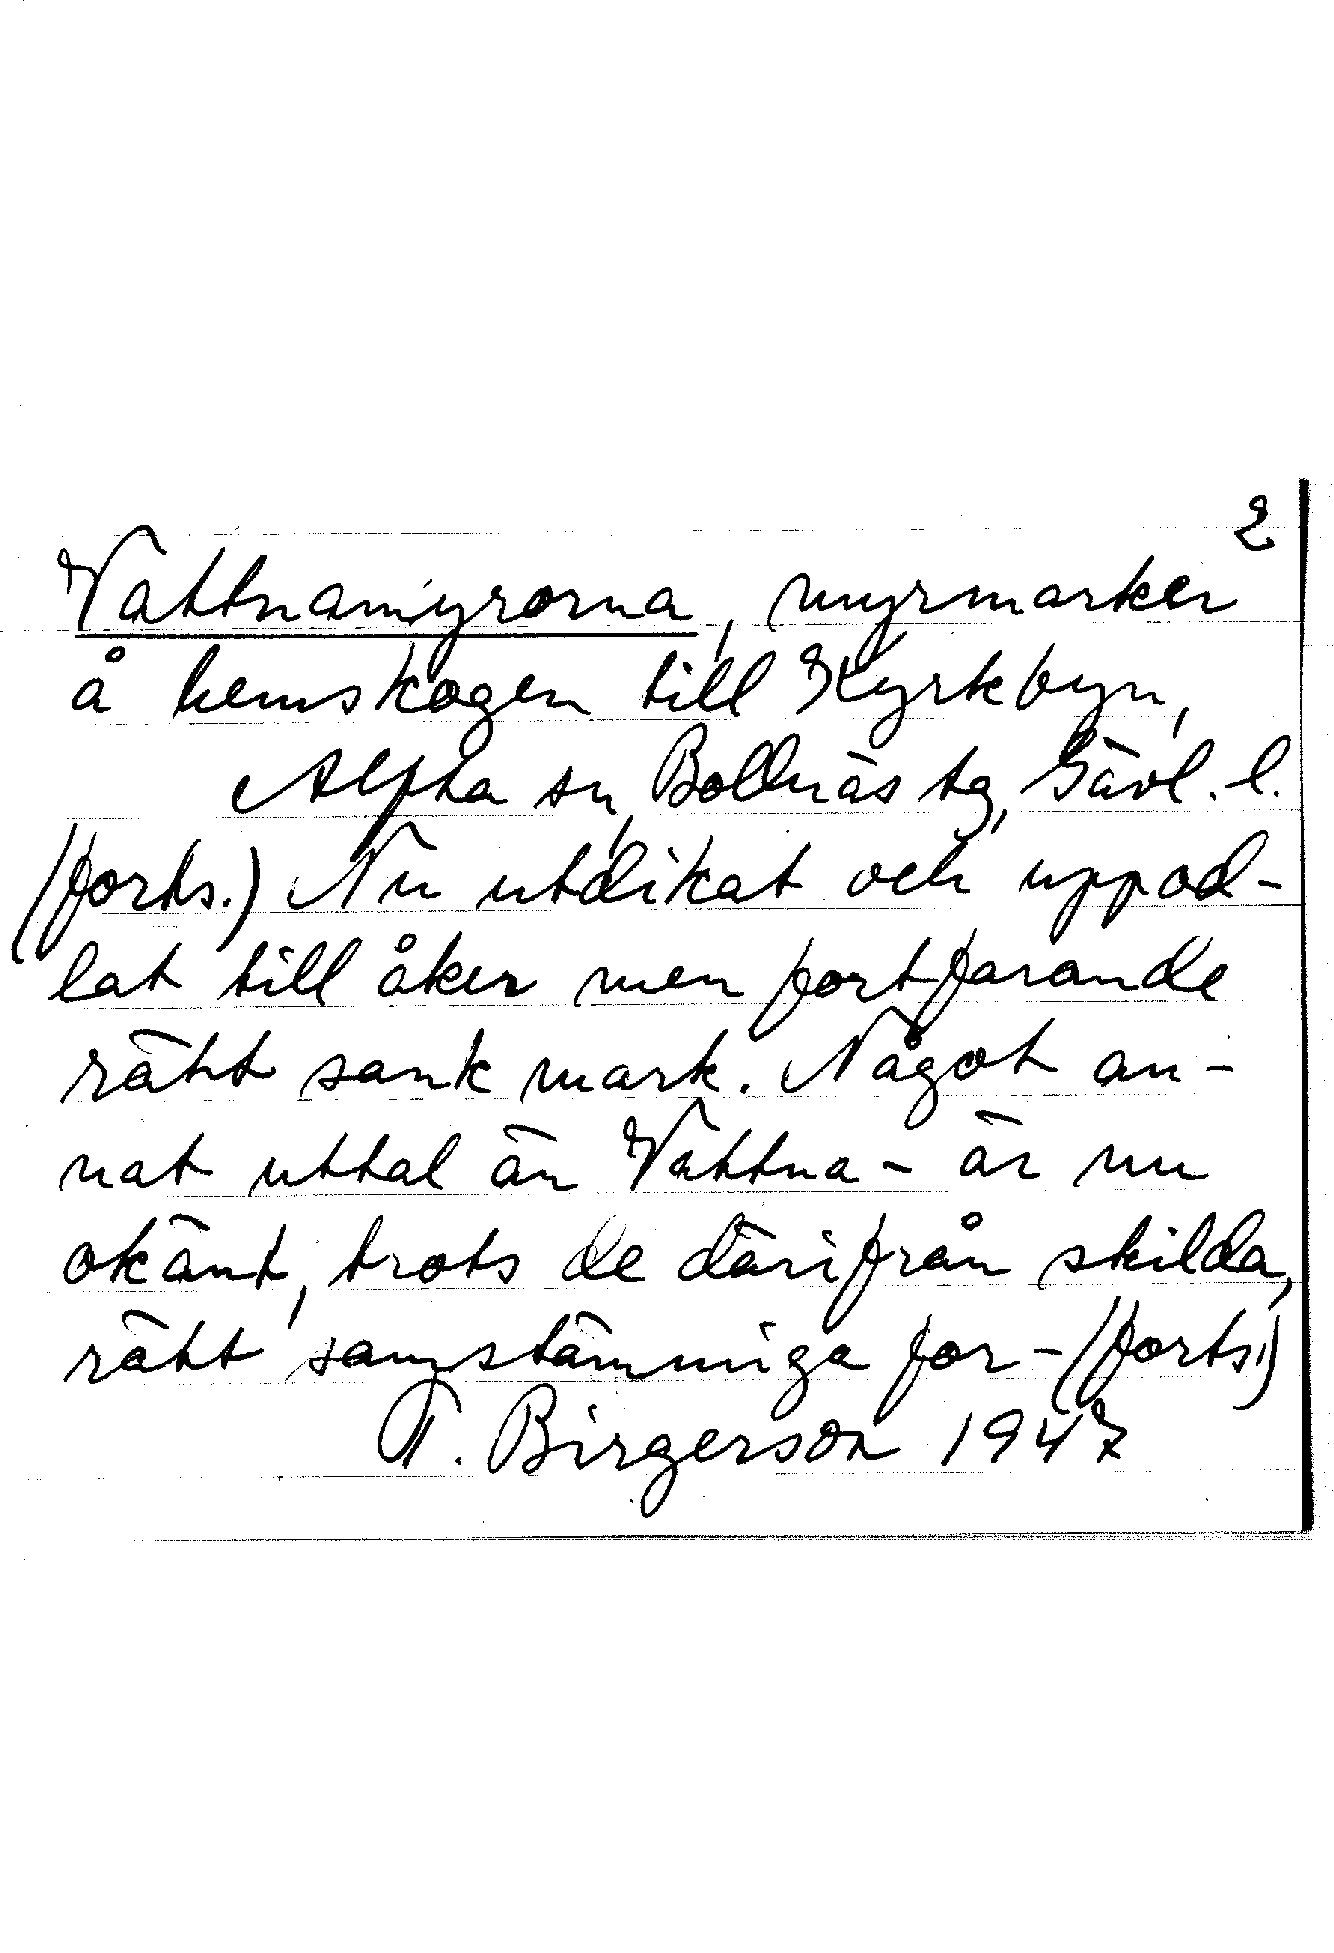 2
Vattnamyrorna, myrmarker
å hemskogen till Kyrkbyn,
Alfta sn, Bollnäs tg, Gävl. l.
(forts.) Nu utdikat och uppod-
lat till åker men fortfarande
rätt sank mark. Något an-
nat uttal än Vattna- är nu
okänt, trots de därifrån skilda,
rätt samstämmiga for- (forts.)
T. Birgerson 1947